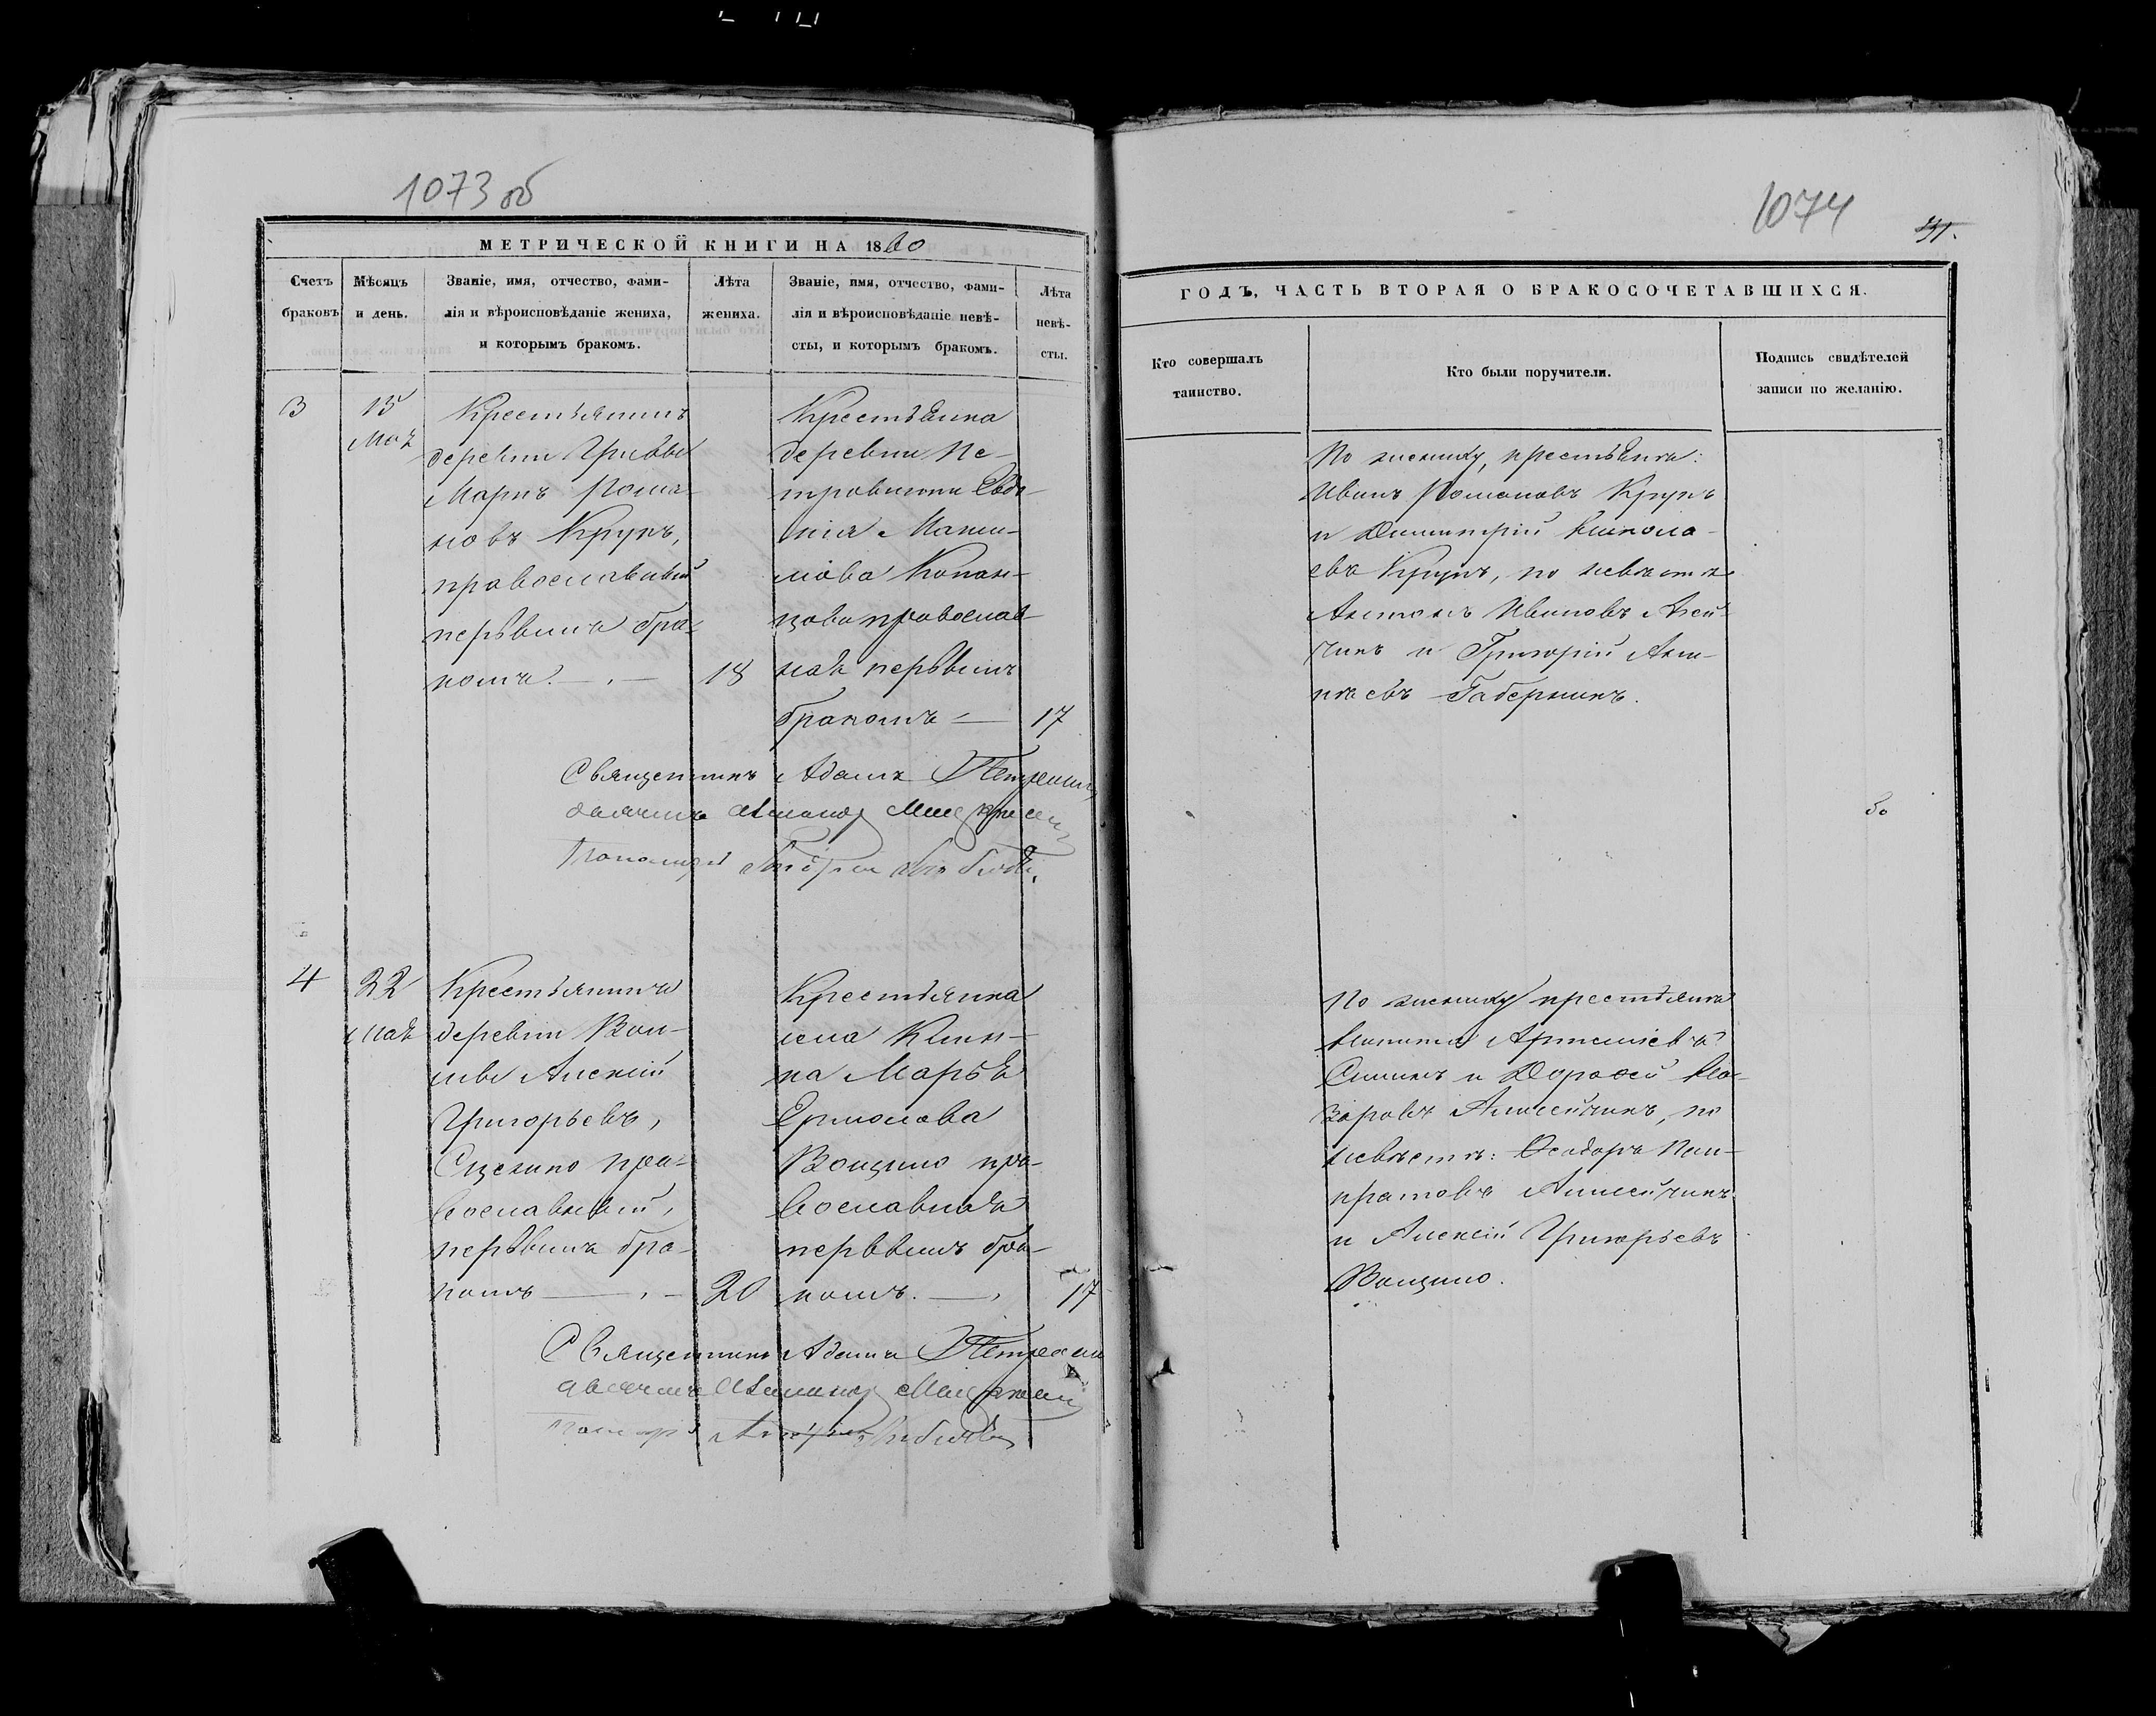 1073 об
МЕТРИЧЕСКОЙ КНИГИ НА 1860
Счетъ браковъ
Мѣсяцъ и день.
Званіе, имя, отчество, фами-
лія и вѣроисповѣданіе жениха,
и которымъ бракомъ.
Лѣта жениха.
Званіе, имя, отчество, фами-
лія и вѣроисповѣданіе невѣ-
сты, и которымъ бракомъ.
Лѣта невѣ-
сты.
3
15
Маѣ
Крестьянинъ
деревни Гривы
Маркъ Рома-
новъ Крукъ,
православный
первымъ бра-
комъ.
18
Крестьянка
деревни Пе-
тровичи Евдо-
кія Макси-
мова
православ-
ная первымъ
бракомъ
17
Священникъ Адамъ
4
22
Маѣ
Крестьянинъ
деревни
Алексій
Григорьевъ,
пра-
вославный,
первымъ бра-
комъ
20
Крестьянка
села
Марья
Ермолова
Вощило пра-
вославная
первымъ бра-
комъ.
17
Священникъ Адамъ
1074
31.
ГОДЪ, ЧАСТЬ ВТОРАЯ О БРАКОСОЧЕТАВШИХСЯ.
Кто совершалъ
таинство.
Кто были поручители.
Подпись свидѣтелей
записи по желанію.
По жениху, крестьяне:
Иванъ Романовъ Крукъ
и Димитрій Никола-
евъ Крукъ, по невѣстѣ
Антонъ Ивановъ
и Григорій
По жениху крестьяне
Никита
и Дороѳей На-
заровъ по
невѣстѣ: Ѳеодоръ Пан-
кратовъ
и Алексій Григорьевъ
Вощило.